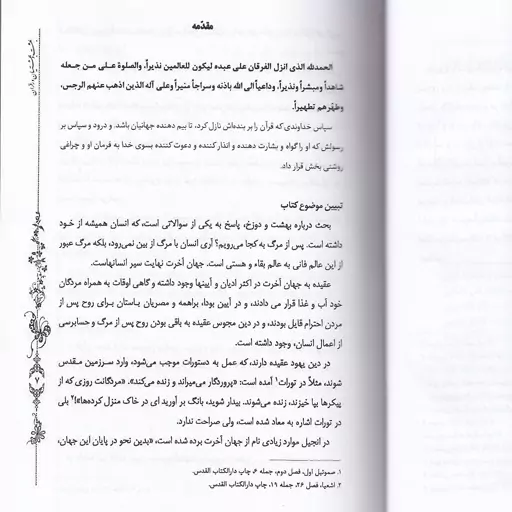 مقدّمه
الحمدلله الذی انزل الفرقان علی عبده لیکون للعالمین نذیراً، والصلوة علی من جعله
شاهداً ومبشراً ونذیراً، وداعیاً الی الله باذنه وسراجاً منیراً وعلی آله الذین اذهب عنهم الرجس،
وطهّرهم تطهیراً.
سپاس خداوندی که قرآن را بر بنده‌اش نازل کرد، تا بیم دهنده جهانیان باشد. و درود و سپاس بر
رسولش که او را گواه و بشارت دهنده و انذار کننده و دعوت کننده بسوی خدا به فرمان او و چراغی
روشنی بخش قرار داد.
تبیین موضوع کتاب
بحث درباره بهشت و دوزخ، پاسخ به یکی از سوالاتی است، که انسان همیشه از خود
داشته است. پس از مرگ به کجا می‌رویم؟ آری انسان با مرگ از بین نمی‌رود، بلکه مرگ عبور
از این عالم فانی به عالم بقاء و هستی است. جهان آخرت نهایت سیر انسانهاست.
عقیده به جهان آخرت در اکثر ادیان و آیینها وجود داشته و گاهی اوقات به همراه مردگان
خود آب و غذا قرار می دادند، و در آیین بودا، براهمه و مصریان باستان برای روح پس از
مردن احترام قایل بودند، و در دین مجوس عقیده به باقی بودن روح پس از مرگ و حسابرسی
از اعمال انسان، وجود داشته است.
در دین یهود عقیده دارند، که عمل به دستورات موجب می‌شود، وارد سرزمین مقدس
شوند، مثلاً در تورات۱ آمده است: «پروردگار می‌میراند و زنده می‌کند». «مردگانت روزی که از
پیکرها بپا خیزند، زنده می‌شوند. بیدار شوید، بانگ بر آورید ای در خاک منزل کرده‌ها»!۲ بلی
در تورات اشاره به معاد شده است، ولی صراحت ندارد.
در انجیل موارد زیادی نام از جهان آخرت برده شده است، «بدین نحو در پایان این جهان،
۱. صموئیل اول، فصل دوم، جمله ۶، چاپ دارالکتاب القدس.
۲. اشعیا، فصل ۲۶، جمله ۱۹، چاپ دارالکتاب القدس.
۷